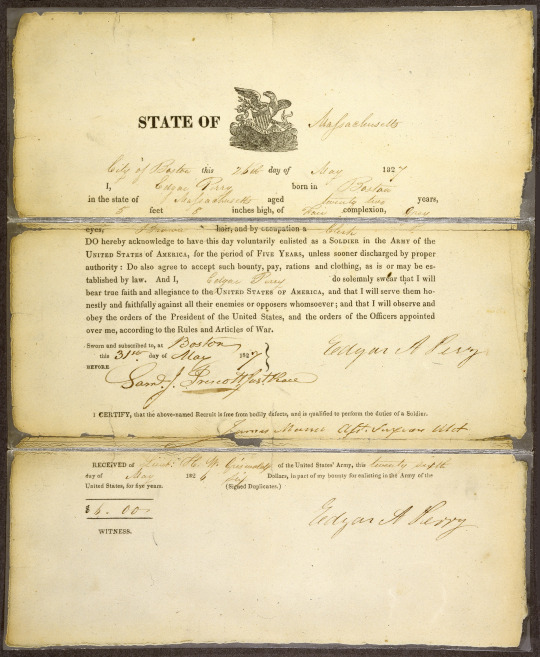 STATE OF Massachusetts
City of Boston this 26th day of May 1827
I, Edgar Perry born in Boston
in the state of Massachusetts aged twenty two years,
5 feet 8 inches high, of fair complexion, Grey
eyes, Brown hair, and by occupation a Clerk
DO hereby acknowledge to have this day voluntarily enlisted as a SOLDIER in the ARMY OF THE
UNITED STATES OF AMERICA, for the period of FIVE YEARS, unless sooner discharged by proper
authority: Do also agree to accept such bounty, pay, rations and clothing, as is or may be es-
tablished by law. And I, Edgar Perry do solemnly swear that I will
bear true faith and allegiance to the UNITED STATES OF AMERICA, and that I will serve them ho-
nestly and faithfully against all their enemies or opposers whomsoever; and that I will observe and
obey the orders of the President of the United States, and the orders of the Officers appointed
over me, according to the Rules and Articles of War.
Sworn and subscribed to, at Boston
this 31st day of May 1827
BEFORE
Edgar A Perry
Saml. J. Prescott Just Peace
I CERTIFY, that the above-named Recruit is free from bodily defects, and is qualified to perform the duties of a Soldier.
James Asst. Surgeon
RECEIVED of Lieut. H. W. Griswold of the United States' Army, this twenty sixth
day of May 1826 six Dollars, in part of my bounty for enlisting in the Army of the
United States, for five years. (Signed Duplicates.)
$6.00
Edgar A Perry
WITNESS.